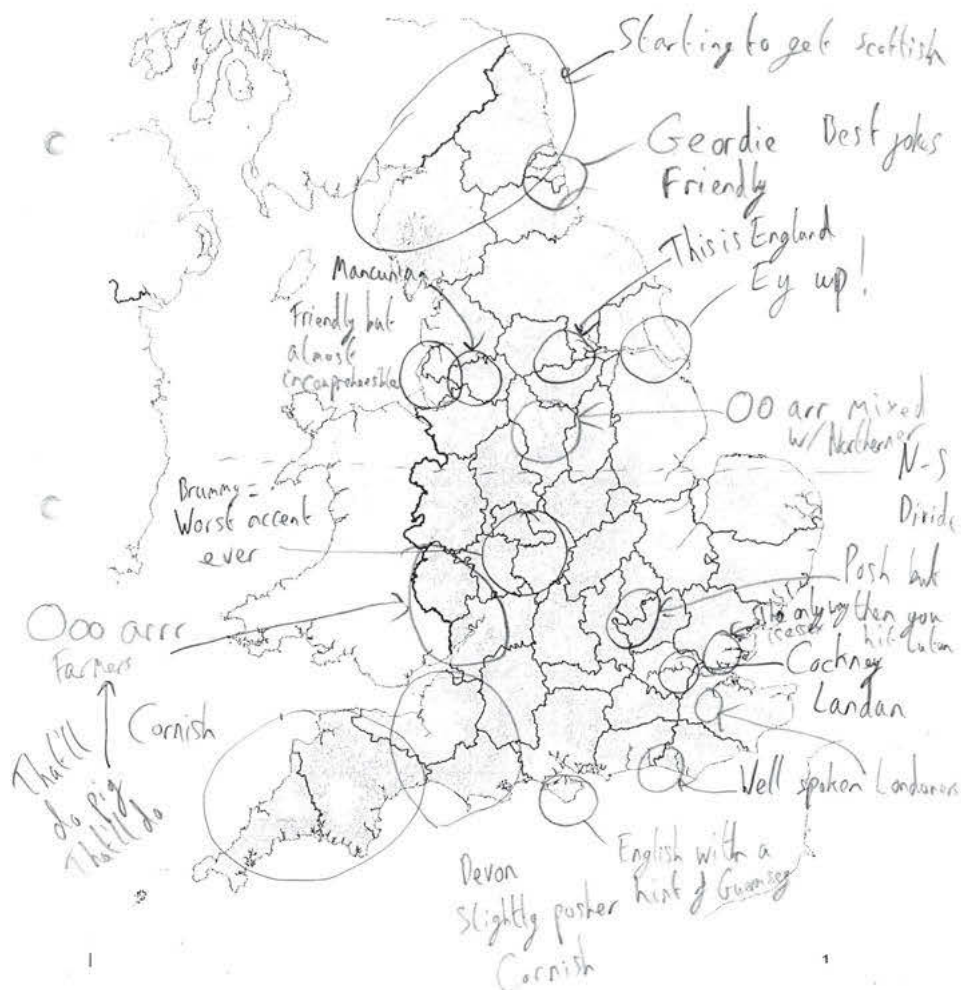 Starting to get scottish
Geordie Best jokes
Friendly
This is England
Ey up!
Mancunian
Friendly but
almost
incomprehensible
OO arr mixed
w/ Northerner
N-S
Divide
Brummy =
Worst accent
ever
Posh but
then you
hit Luton
The only way
is essex
Ooo arrr
Farmers
Cockney
Landan
Cornish
That'll
do pig
That'll do
Well spoken Londoners
English with a
hint of Guernsey
Devon
Slightly posher
Cornish
1
1